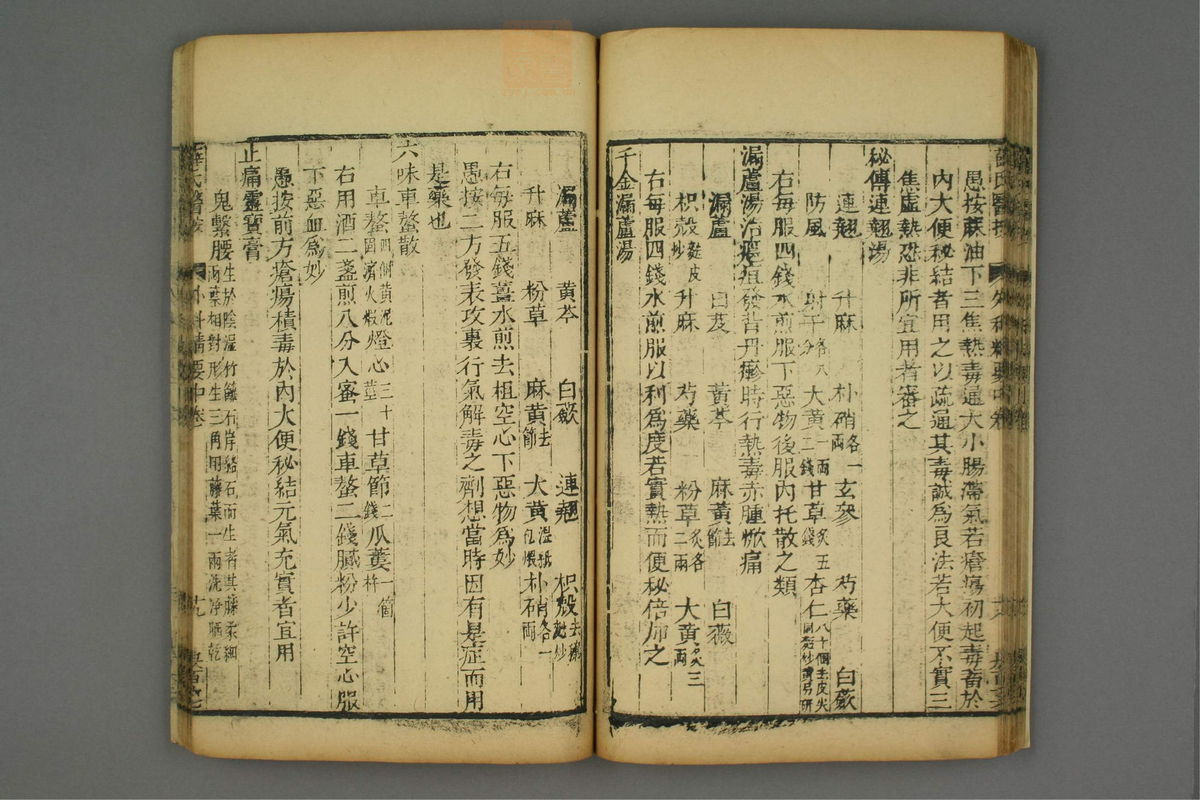 愚按蔴油下三焦熱毒通大小腸滯氣若瘡瘍初起毒畜於
內大便秘結者用之以疏通其毒誠爲良法若大便不實三
焦虛熱恐非所宜用者審之
秘傳連翹湯
連翹 升麻 朴硝各一兩 玄參 芍藥 白蘞
防風 射干各八分 大黃一兩二錢 甘草炙五錢 杏仁八十個去皮尖
右每服四錢水煎服下惡物後服內托散之類
漏蘆湯治癰疽發背丹瘮時行熱毒赤腫焮痛
漏蘆 白芨 黃芩 麻黃去節 白薇
枳殼麩皮炒 升麻 芍藥 粉草炙各二兩 大黃三兩
右每服四錢水煎服以利爲度若實熱而便秘倍加之
千金漏蘆湯
漏蘆 黃芩 白蘞 連翹 枳殼去穰麩炒
升麻 粉草 麻黃去節 大黃濕紙 朴硝各一兩
右每服五錢薑水煎去柤空心下惡物爲妙
愚按二方發表攻裏行氣解毒之劑想當時因有是症而用
是藥也
六味車螯散
車螯四個黃泥固濟火煆 燈心三十莖 甘草節二錢 瓜蔞一箇
右用酒二盞煎八分入蜜一錢車螯二錢膩粉少許空心服
下惡血爲妙
愚按前方瘡瘍積毒於內大便秘結元氣充實者宜用
止痛靈寶膏
鬼繫腰生於陰濕竹籬石岸絡石而生者其藤柔細兩葉相對形生三角用藤葉一兩洗淨晒乾
薛氏醫按 外科精要中卷 十九